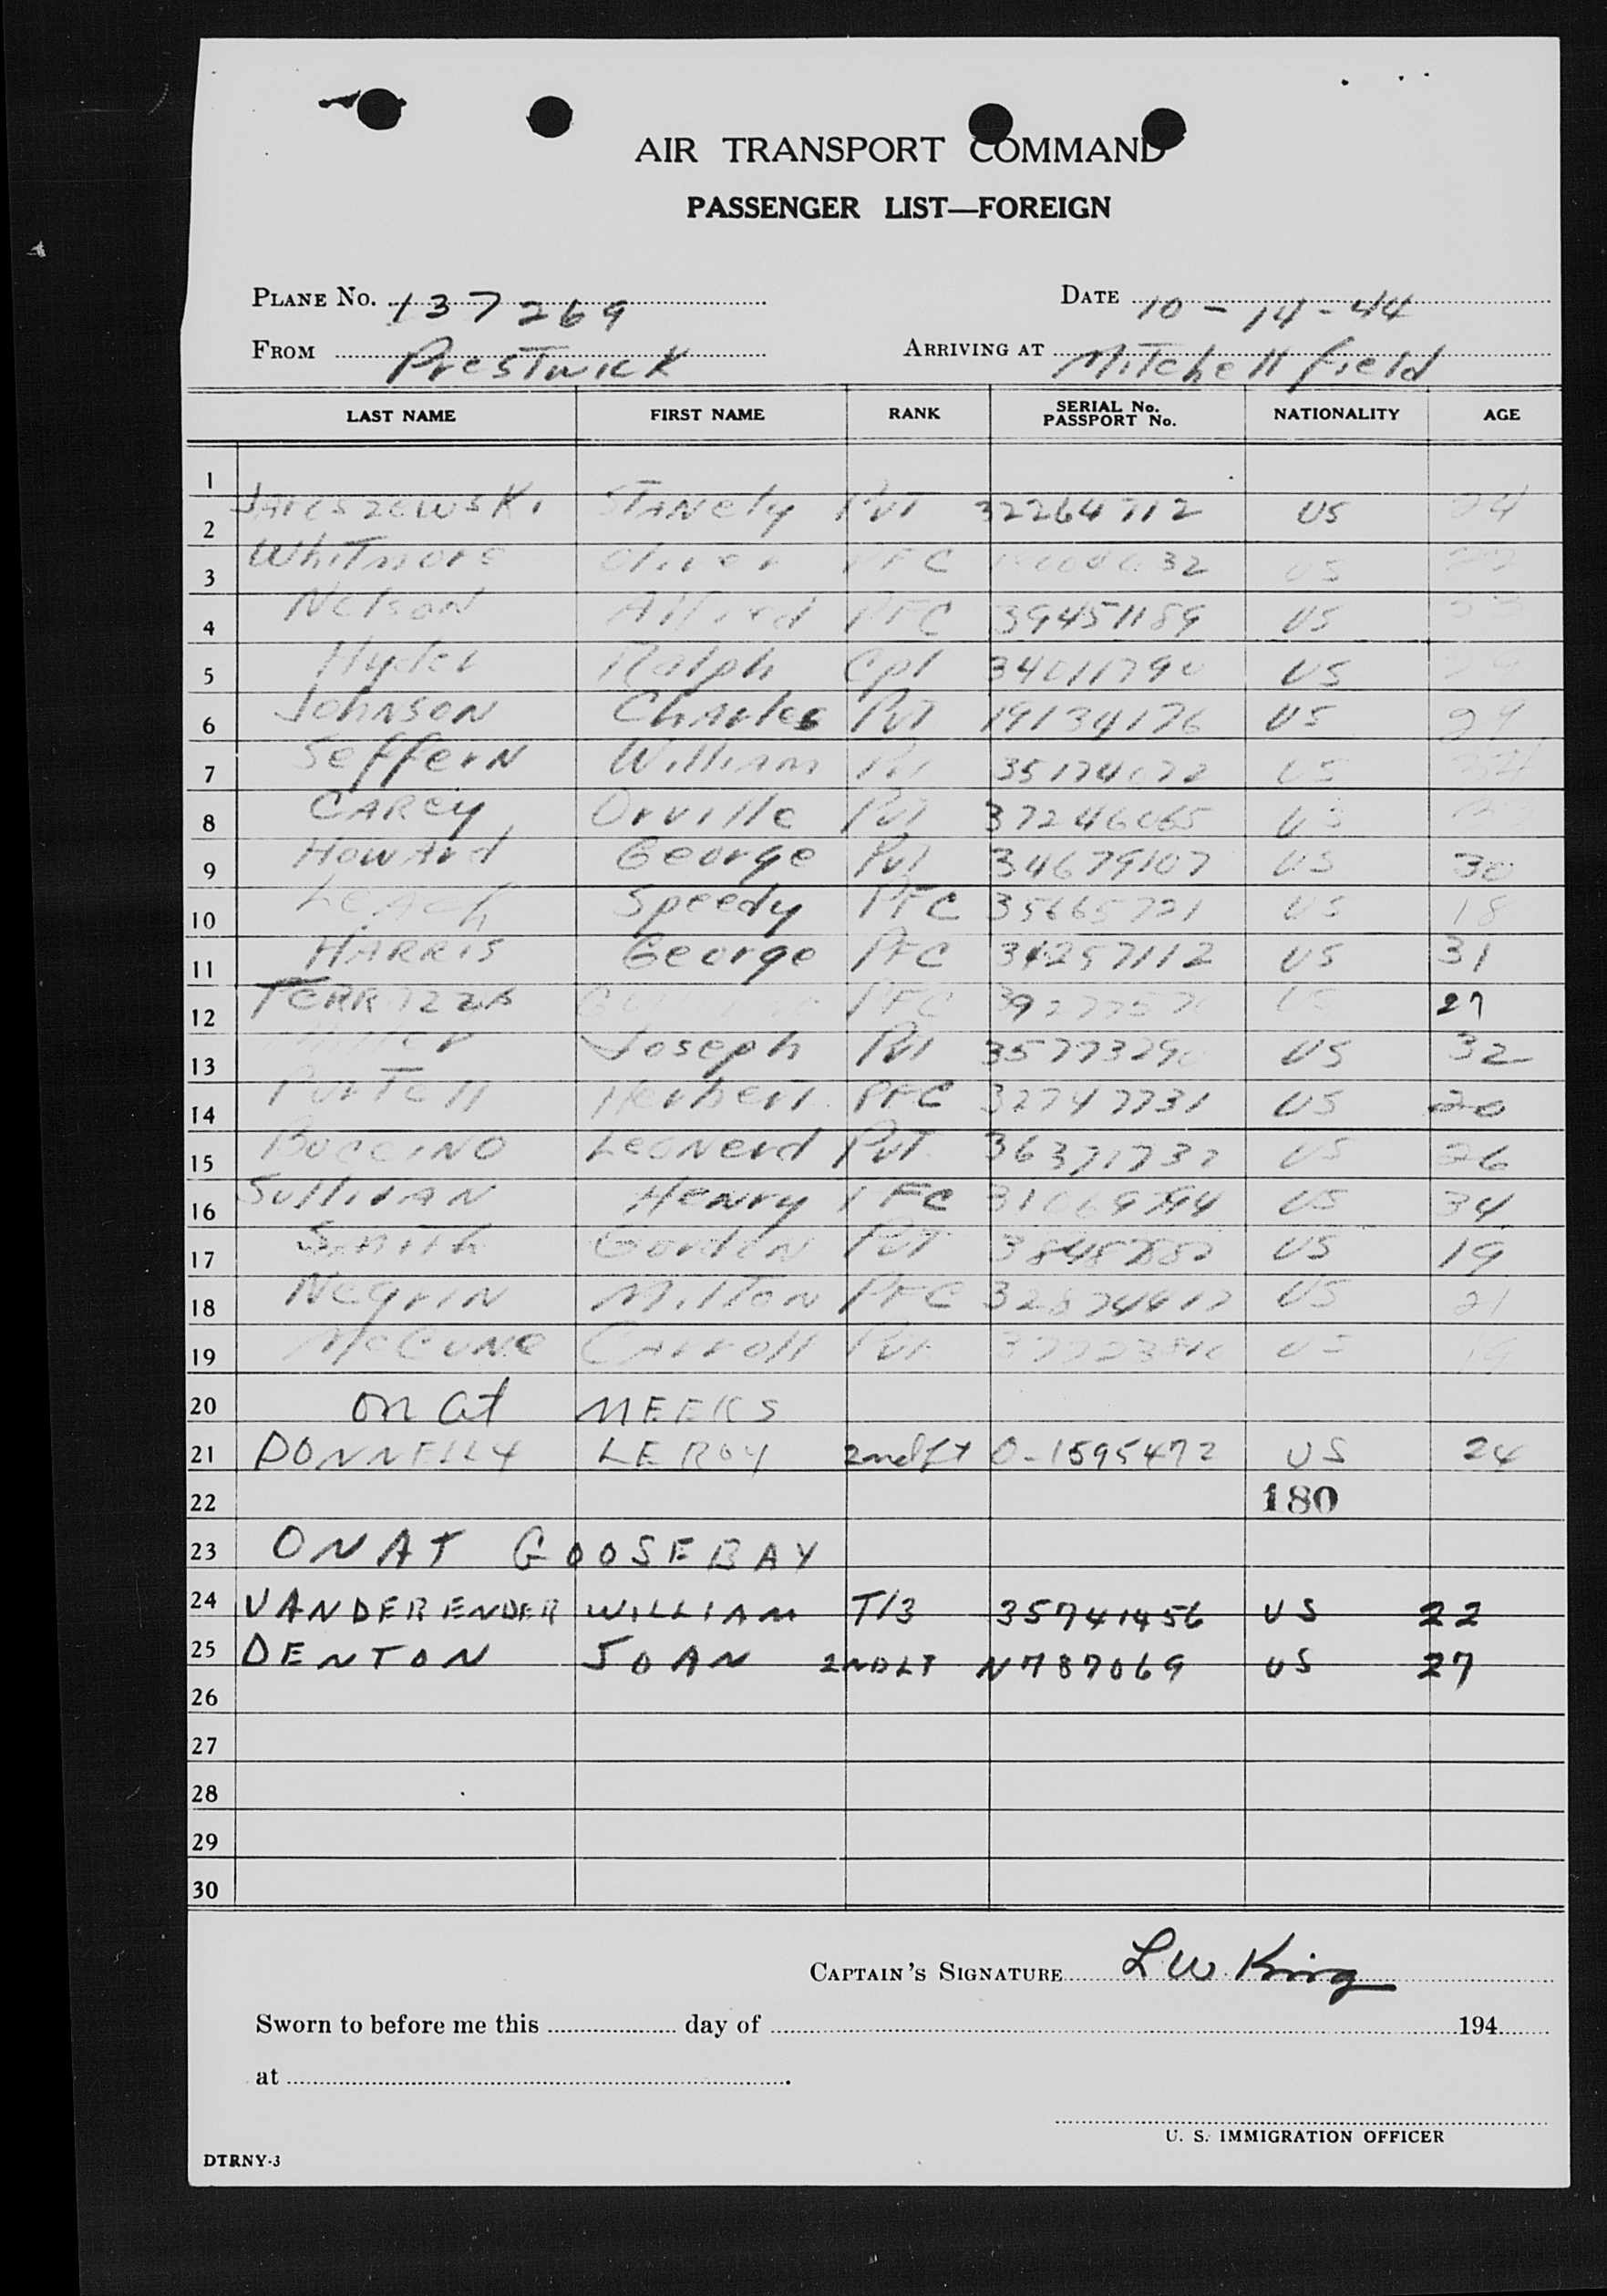 AIR TRANSPORT COMMAND
PASSENGER LIST—FOREIGN
PLANE No. 137269 DATE 10-14-44
FROM Prestwick ARRIVING AT Mitchell field
LAST NAME FIRST NAME RANK SERIAL No. PASSPORT No. NATIONALITY AGE
1
2 Stanely Pvt 32264712 US 24
3 Whitmore Oliver PFC US
4 Nelson Alfred PFC 39451189 US
5 Hyder Ralph Cpl 34011790 US
6 Johnson Charles Pvt 19134176 US 24
7 Seffern William Pvt US
8 CARey Orville Pvt 37246065 US
9 Howard George Pvt 34679107 US 30
10 Leach Speedy PFC 35665721 US 18
11 HARRIS George PFC 34257112 US 31
12 PFC US 27
13 Joseph Pvt 35773290 US 32
14 Portell Herbert PFC 32747731 US 20
15 Boccino Leonerd Pvt 36371737 US 26
16 Sullivan Henry PFC US 34
17 Smith Gordon Pvt US 19
18 Negrin Milton PFC US 21
19 McCune Carroll Pvt US 19
20 on at MEEKS
21 DONNELLY LEROY 2nd Lt O-1595472 US 24
22 180
23 ON AT GOOSEBAY
24 VANDERENDER WILLIAM T/3 35741456 US 22
25 DENTON JOAN 2ND LT N787069 US 27
26
27
28
29
30
CAPTAIN'S SIGNATURE L W King
Sworn to before me this day of 194
at
U. S. IMMIGRATION OFFICER
DTRNY-3